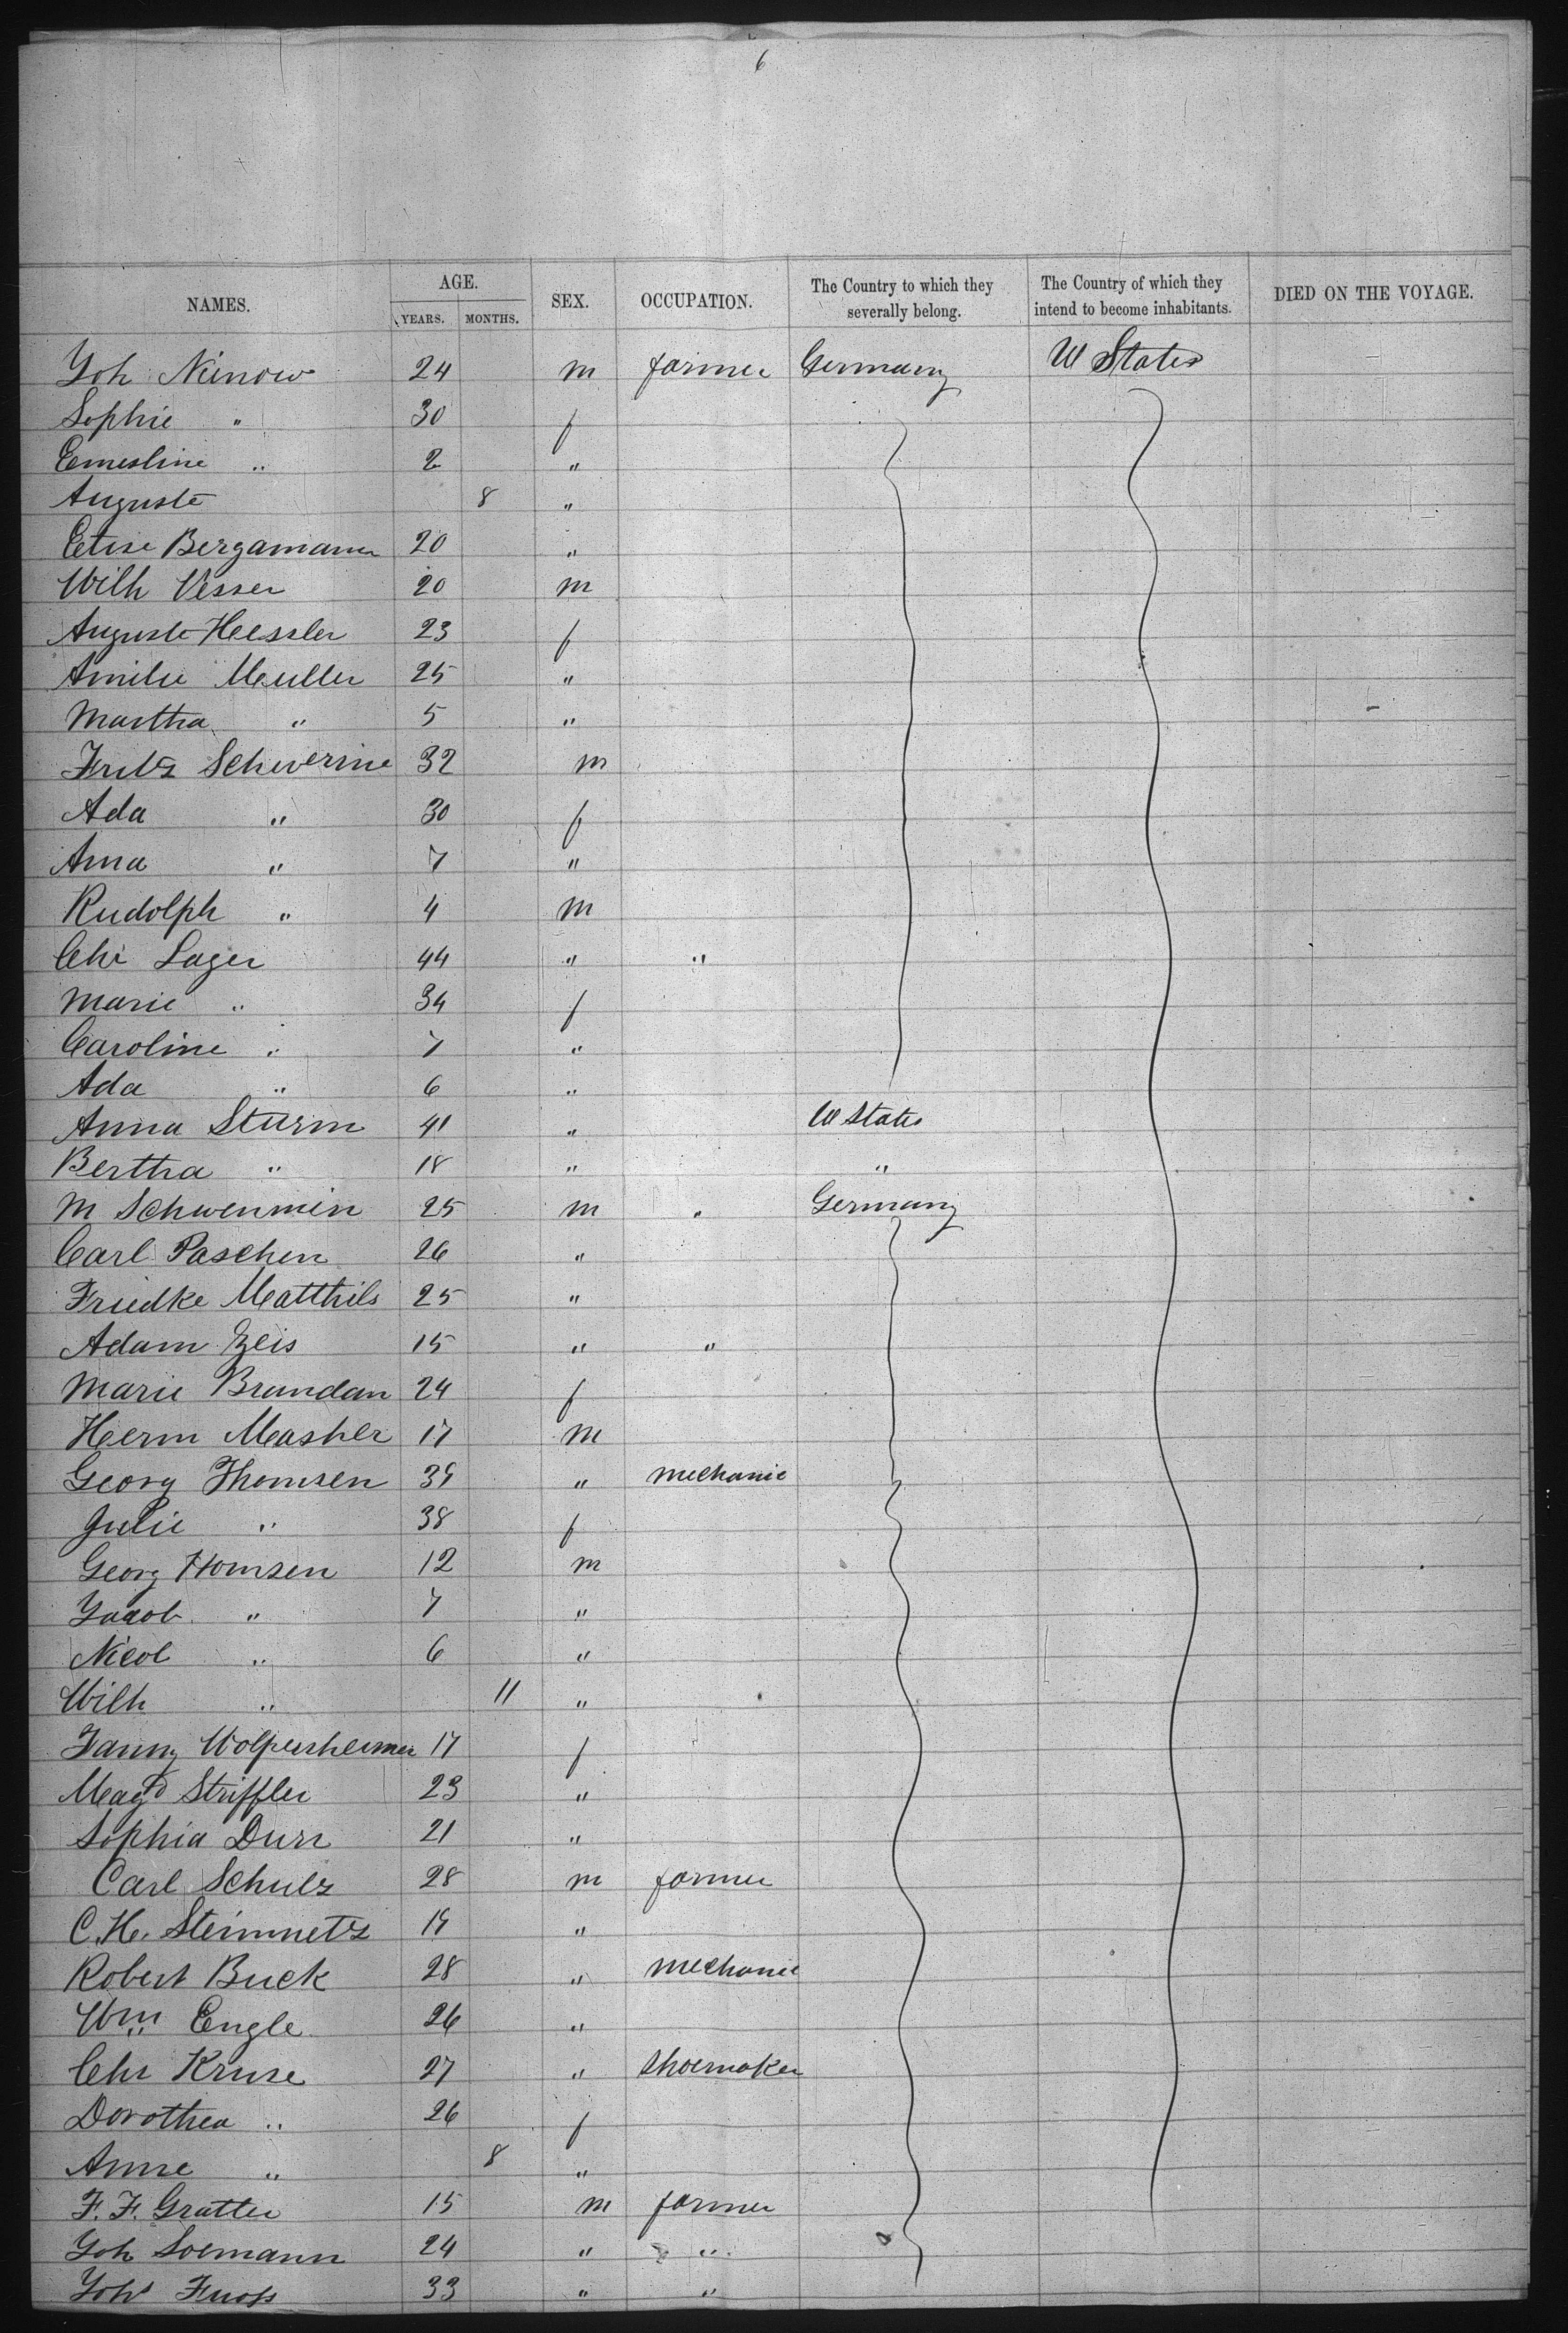 6
NAMES. AGE. YEARS. MONTHS. SEX. OCCUPATION. The Country to which they severally belong. The Country of which they intend to become inhabitants. DIED ON THE VOYAGE.
Joh 24 m farmer Germany U States
Sophie " 30 f
Ernestine " 2 "
Auguste 8 "
Bergamann 20 "
Wilh 20 m
Auguste Hessler 23 f
Amilie Muller 25 "
Martha " 5 "
Fritz Schwerine 32 m
Ada " 30 f
Anna " 7 "
Rudolph " 4 m
Chr Lager 44 " "
Marie " 34 f
Caroline " 7 "
Ada " 6 "
Anna Sturm 41 " U States
Bertha " 18 " "
M Schwenmin 25 m " Germany
Carl Paschen 26 "
Friedke Matthils 25 "
Adam Zeis 15 " "
Marie Brandan 24 f
Herm Masher 17 m
Georg Thomsen 39 " mechanic
Julie " 38 f
Georg Homsen 12 m
Jacob " 7 "
Nicol " 6 "
Wilh " 11 "
Fanny 17 f
Magd Striffler 23 "
Sophia Durr 21 "
Carl Schulz 28 m farmer
C. H. Steinmetz 19 "
Robert Buck 28 " mechanic
Wm Engle 26 "
Chr Kruse 27 " shoemaker
Dorothea " 26 f
Anne " 8 "
F. F. Gratter 15 m farmer
Joh Soemann 24 " "
Joh 33 " "